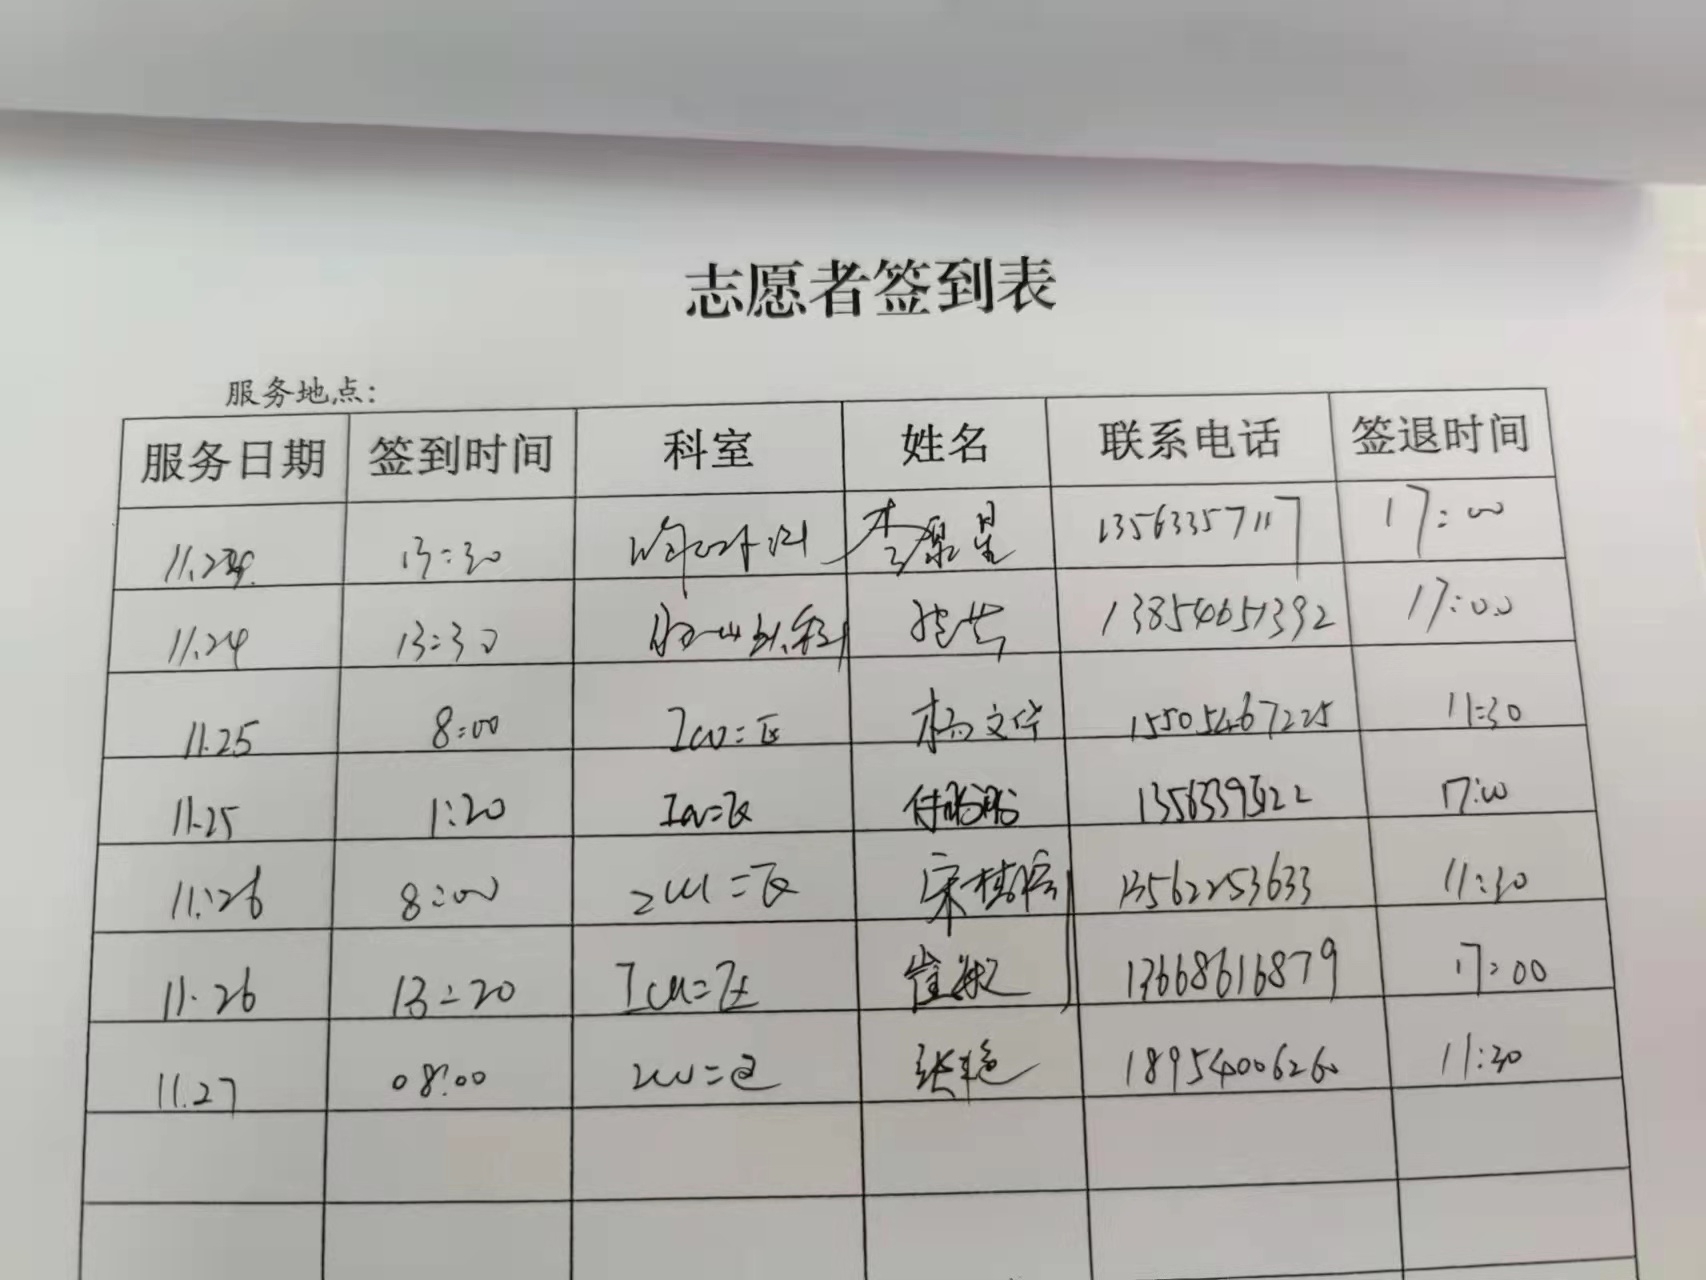 志愿者签到表
服务地点:
服务日期 签到时间 科室 姓名 联系电话 签退时间
13:30 13563357117 17:00
11.24 13:30 13854651392 17:00
11.25 8:00 Icu=区 杨文华 15505467225 11:30
11.25 1:20 Icu=区 付盼盼 17:00
11.26 8:00 ICU=区 宋 13562253633 11:30
11.26 13:20 Icu=区 崔敏 13668616879 17:00
11.27 08:00 ICU=区 张艳 18954006260 11:30